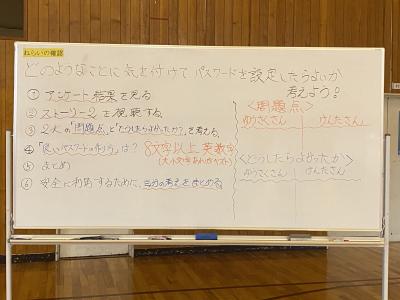 ねらいの確認
どのようなことに気を付けて パスワードを設定したらよいか
考えよう!
① アンケート結果を見る
② ストーリー2を視聴する
③ 2人の「問題点」と「どうしたらよかったか?」を考える
④ 「良いパスワードの作り方」は? 8文字以上 英数字
(大小文字あわせてスト)
⑤ まとめ
⑥ 安全に利用するために、自分の考えをまとめる
<問題点>
ゆうさくさん けんたさん
<どうしたらよかったか>
ゆうさくさん けんたさん